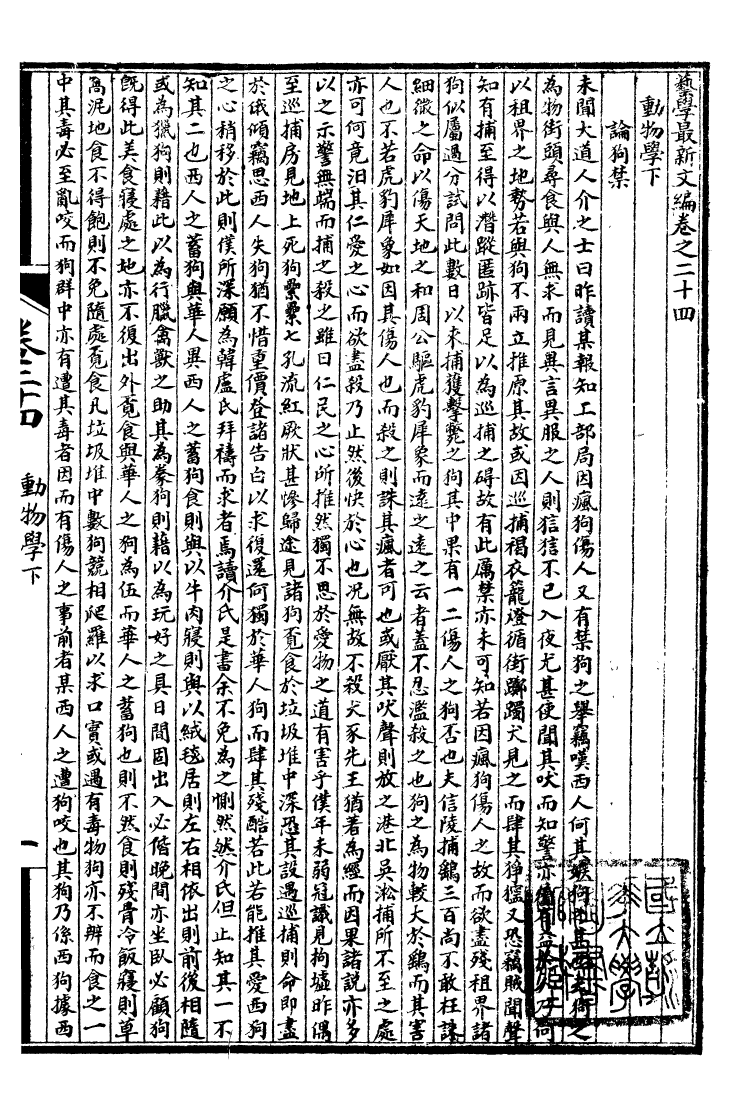 藝學最新文編卷之二十四
動物學下
論狗禁
未聞大道人介之士曰昨讀某報知工部局因瘋狗傷人又有禁狗之舉竊嘆西人何其
為物街頭尋食與人無求而見異言異服之人則狺狺不已入夜尤甚使聞其吠而知警亦
以租界之地勢若與狗不兩立推原其故或因巡捕褐衣籠燈循街躑躅犬見之而肆其猙獰又恐竊賊聞聲
知有捕至得以潛蹤匿跡皆足以為巡捕之碍故有此厲禁亦未可知若因瘋狗傷人之故而欲盡殘租界諸
狗似屬過分試問此數日以來捕獲擊斃之狗其中果有一二傷人之狗否也夫信陵捕鷂三百尚不敢枉誅
細微之命以傷天地之和周公驅虎豹犀象而遠之遠之云者蓋不忍濫殺之也狗之為物較大於鷂而其害
人也不若虎豹犀象如因其傷人也而殺之則誅其瘋者可也或厭其吠聲則放之港北吳淞捕所不至之處
亦可何竟汨其仁愛之心而欲盡殺乃止然後快於心也况無故不殺犬豕先王猶著為經而因果諸說亦多
以之示警無端而捕之殺之雖曰仁民之心所推然獨不思於愛物之道有害乎僕年未弱冠識見拘墟昨偶
至巡捕房見地上死狗纍纍七孔流紅厥狀甚慘歸途見諸狗覓食於垃圾堆中深恐其設遇巡捕則命即盡
於俄傾竊思西人失狗猶不惜重價登諸告白以求復還何獨於華人狗而肆其殘酷若此若能推其愛西狗
之心稍移於此則僕所深願為韓盧氏拜禱而求者焉讀介氏是書余不免為之惻然然介氏但止知其一不
知其二也西人之蓄狗與華人異西人之蓄狗食則與以牛肉寢則與以絨毯居則左右相依出則前後相隨
或為獵狗則藉此以為行臘禽獸之助其為豢狗則藉以為玩好之具日間固出入必偕晚間亦坐臥必顧狗
既得此美食寢處之地亦不復出外覓食與華人之狗為伍而華人之蓄狗也則不然食則殘骨冷飯寢則草
窩泥地食不得飽則不免隨處覓食凡垃圾堆中數狗競相爬羅以求口實或遇有毒物狗亦不辨而食之一
中其毒必至亂咬而狗群中亦有遭其毒者因而有傷人之事前者某西人之遭狗咬也其狗乃係西狗據西
卷二十四
動物學下
一